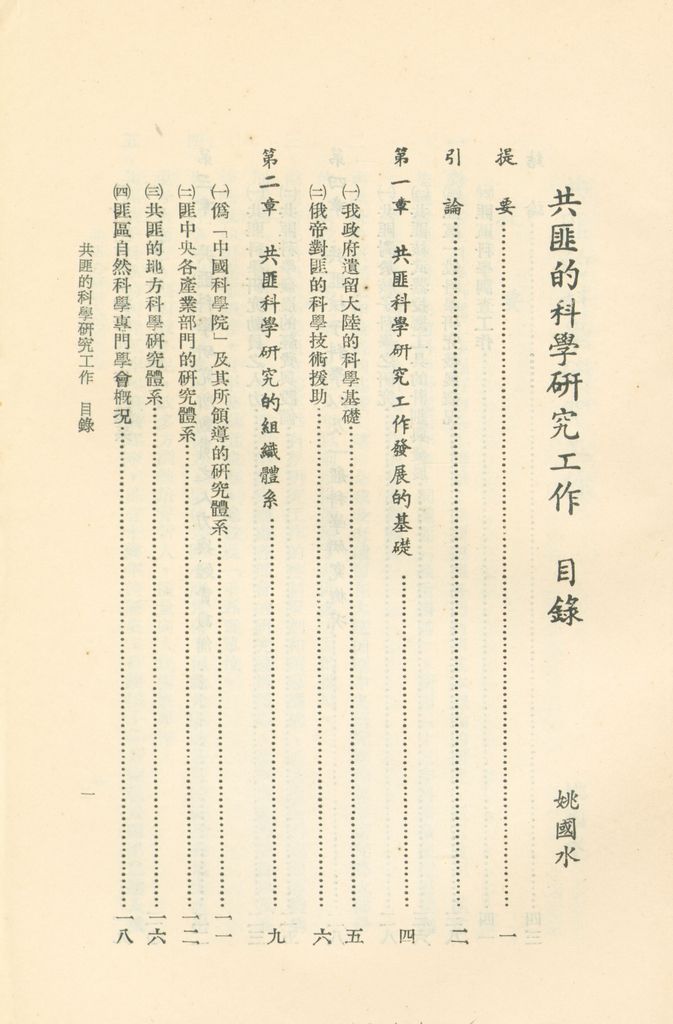 共匪的科學研究工作　目錄　姚國水
提　要……一
引　論……二
第一章　共匪科學研究工作發展的基礎……四
㈠我政府遺留大陸的科學基礎……五
㈡俄帝對匪的科學技術援助……六
第二章　共匪科學研究的組織體系……九
㈠僞「中國科學院」及其所領導的研究體系……一一
㈡匪中央各產業部門的研究體系……一二
㈢共匪的地方科學研究體系……一六
㈣匪區自然科學專門學會概況……一八
共匪的科學研究工作　目錄　一